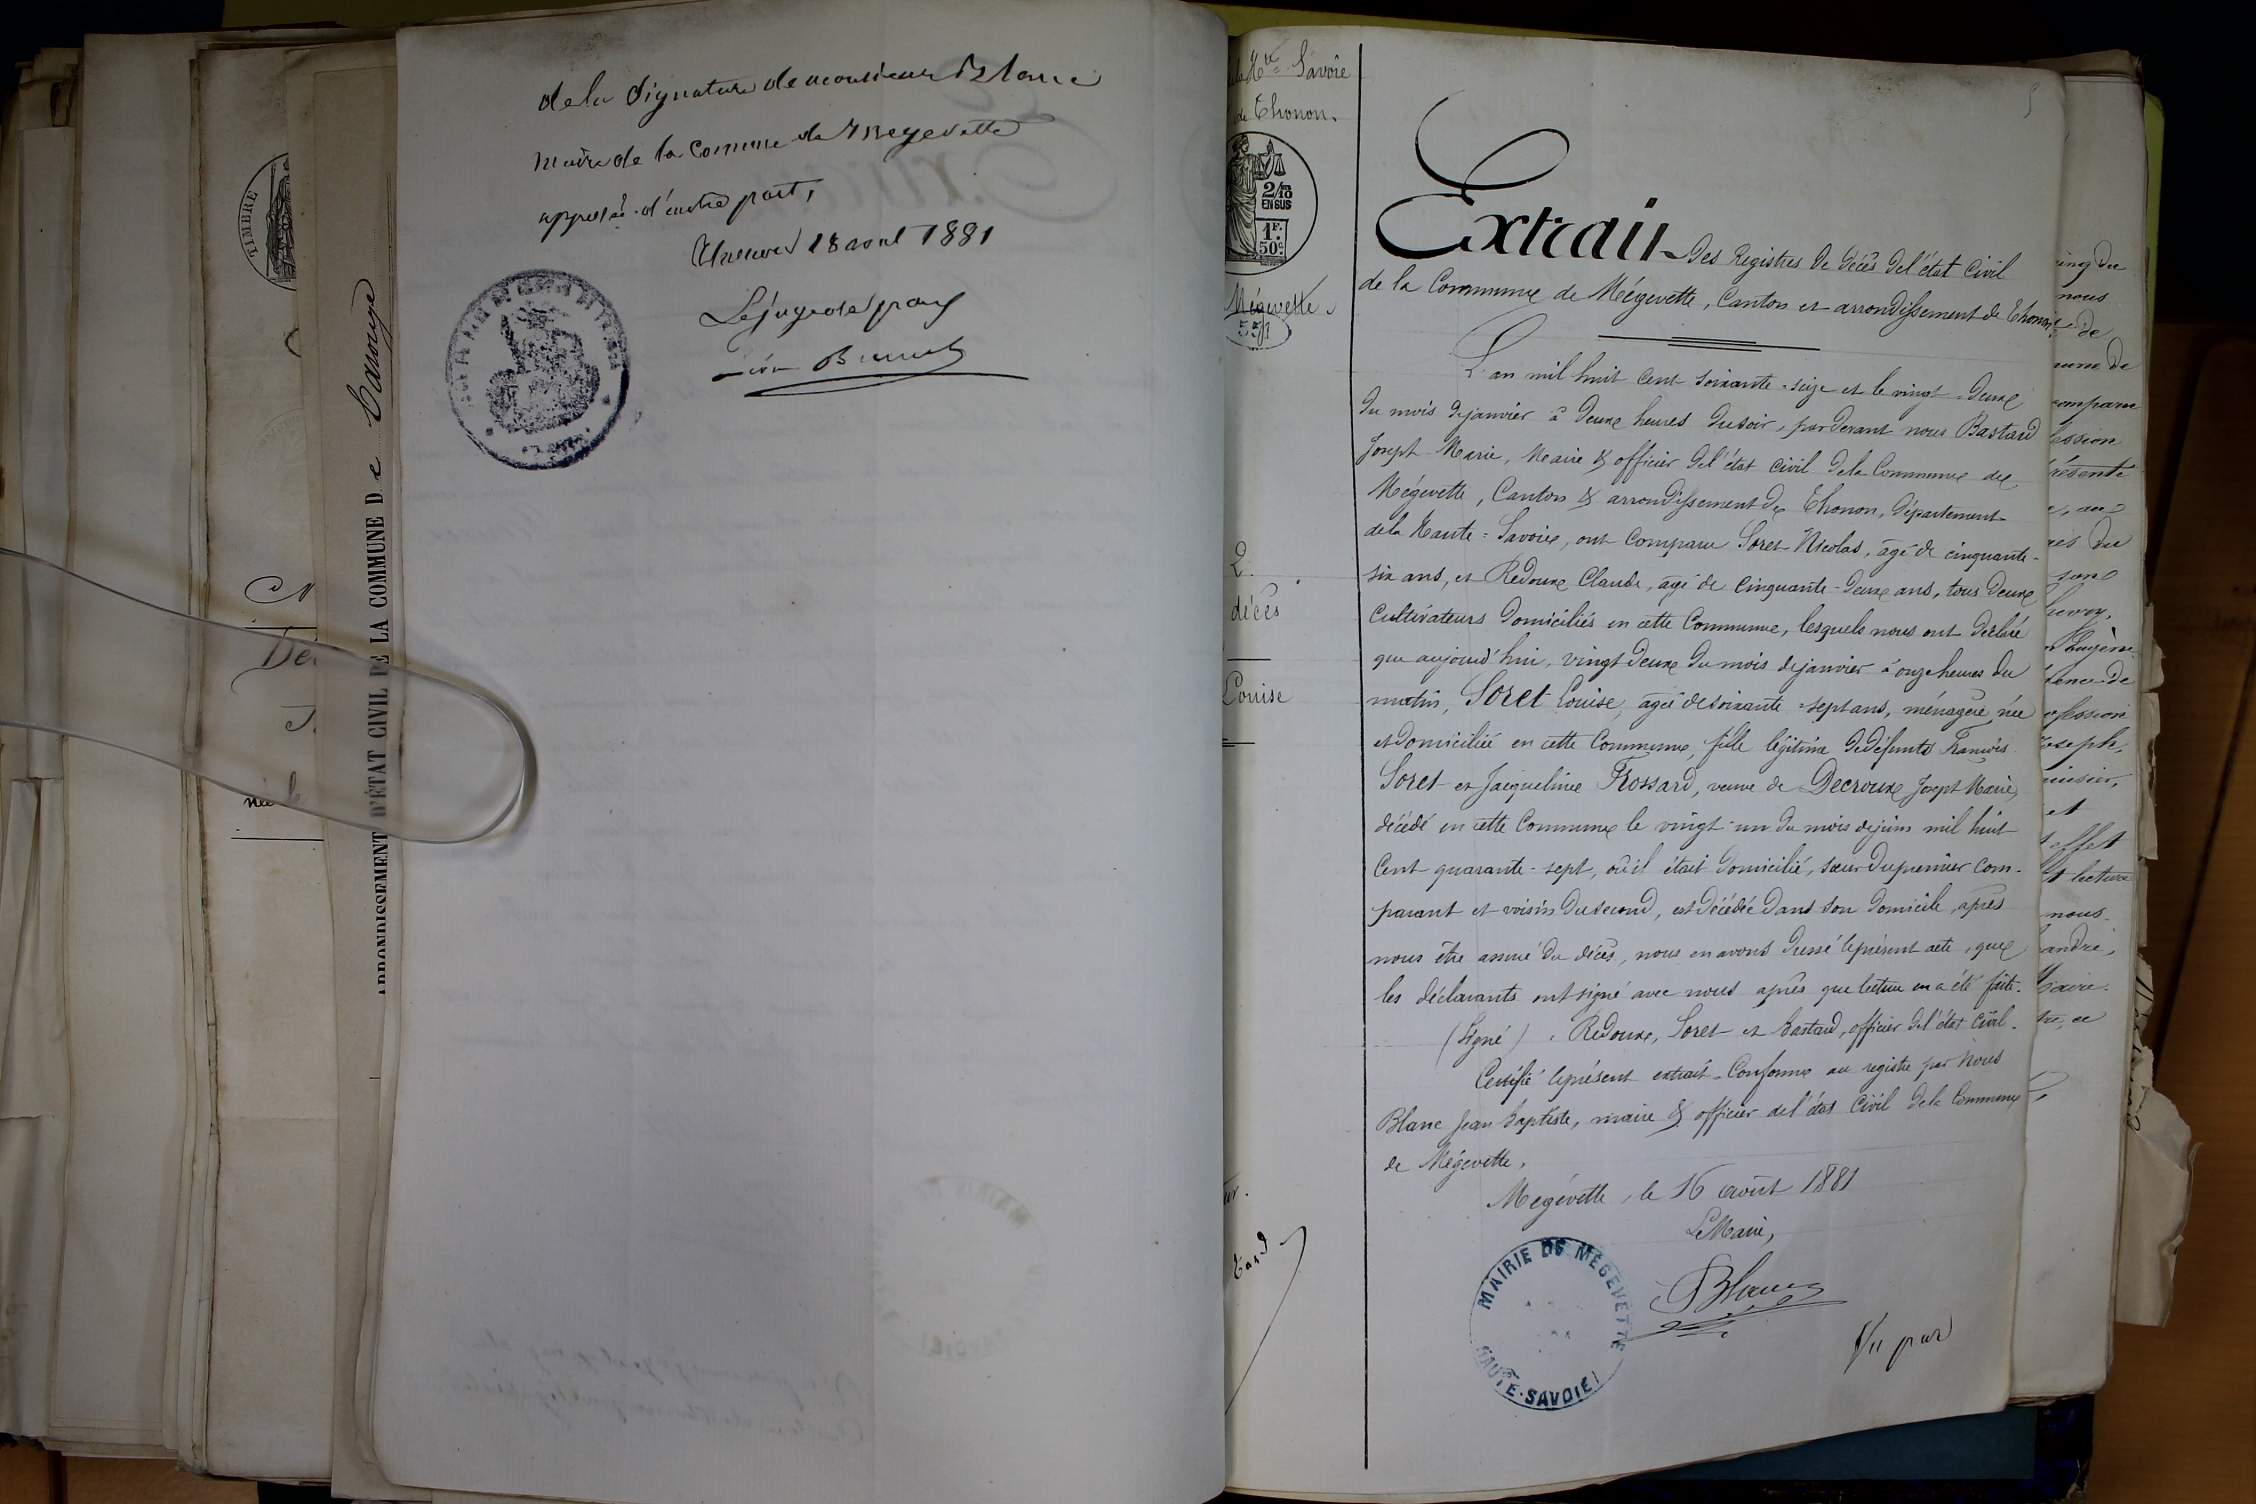 de la signature de monsieur Blanc
maire de la Commune de Megevette
apposée d'autre part,
18 aout 1881
Le juge de paix
TIMBRE
ARRONDISSEMENT D'ÉTAT CIVIL DE LA COMMUNE D e Carouge
de Hte Savoie
de Thonon.
2/10
EN SUS
1F.
50c.
Mégevette
551
2.
décès
Louise
Extrait des Registres de décès de l'état Civil
de la Commune de Mégevette, Canton et arrondissement de Thonon.
L'an mil huit cent soixante-seize et le vingt-deux
du mois de janvier à deux heures du soir, par devant nous Bastard
Joseph Marie, Maire & officier de l'état civil de la Commune de
Mégevette, Canton & arrondissement de Thonon, département
de la Haute-Savoie, ont comparu Soret Nicolas, âgé de cinquante-
six ans, et Redoux Claude, âgé de cinquante-deux ans, tous deux
Cultivateurs domiciliés en cette Commune, lesquels nous ont déclaré
que aujourd'hui, vingt deux du mois de janvier à onze heures du
matin, Soret Louise, âgée de soixante-sept ans, ménagère, née
et domiciliée en cette Commune, fille légitime de défunts François
Soret et Jacqueline Frossard, veuve de Decroux Joseph Marie,
décédé en cette Commune le vingt-un du mois de juin mil huit
Cent quarante-sept, où il était domicilié, sœur du premier com-
parant et voisin du second, est décédée dans son domicile, après
nous être assuré du décès, nous en avons dressé le présent acte, que
les déclarants ont signé avec nous après que lecture en a été faite.
(Signé) Redoux, Soret et Bastard, officier de l'état civil.
Certifié le présent extrait Conforme au registre par Nous
Blanc Jean Baptiste, maire & officier de l'état Civil de la Commune
de Mégevette,
Megévette, le 16 août 1881
Le Maire,
Blanc
MAIRIE DE MÉGEVETTE
HAUTE-SAVOIE
Vu par
nous
de
comparu
résente
Joseph,
et
effet
lecture
nous